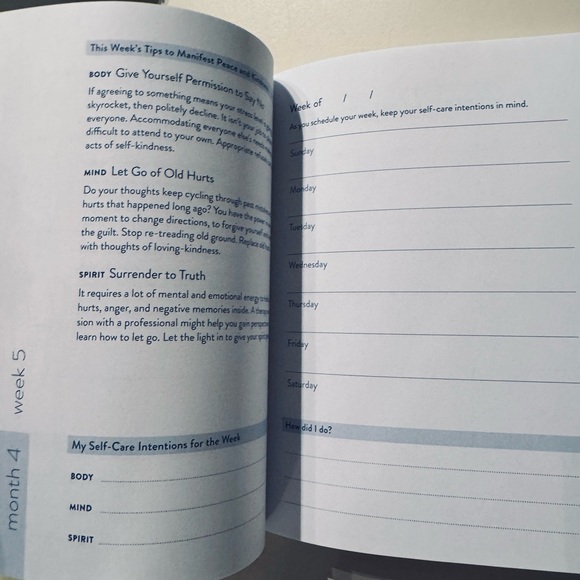 This Week's Tips to Manifest Peace and
BODY Give Yourself Permission to Say No
If agreeing to something means your stress level
skyrocket, then politely decline. It isn't your job to
everyone. Accommodating everyone else's needs
difficult to attend to your own. Appropriate
acts of self-kindness.
MIND Let Go of Old Hurts
Do your thoughts keep cycling through past
hurts that happened long ago? You have the power
moment to change directions, to forgive yourself
the guilt. Stop re-treading old ground. Replace old
with thoughts of loving-kindness.
SPIRIT Surrender to Truth
It requires a lot of mental and emotional energy to
hurts, anger, and negative memories inside. A
sion with a professional might help you gain
learn how to let go. Let the light in to give your
My Self-Care Intentions for the Week
BODY
MIND
SPIRIT
month 4 week 5
Week of / /
As you schedule your week, keep your self-care intentions in mind.
Sunday
Monday
Tuesday
Wednesday
Thursday
Friday
Saturday
How did I do?